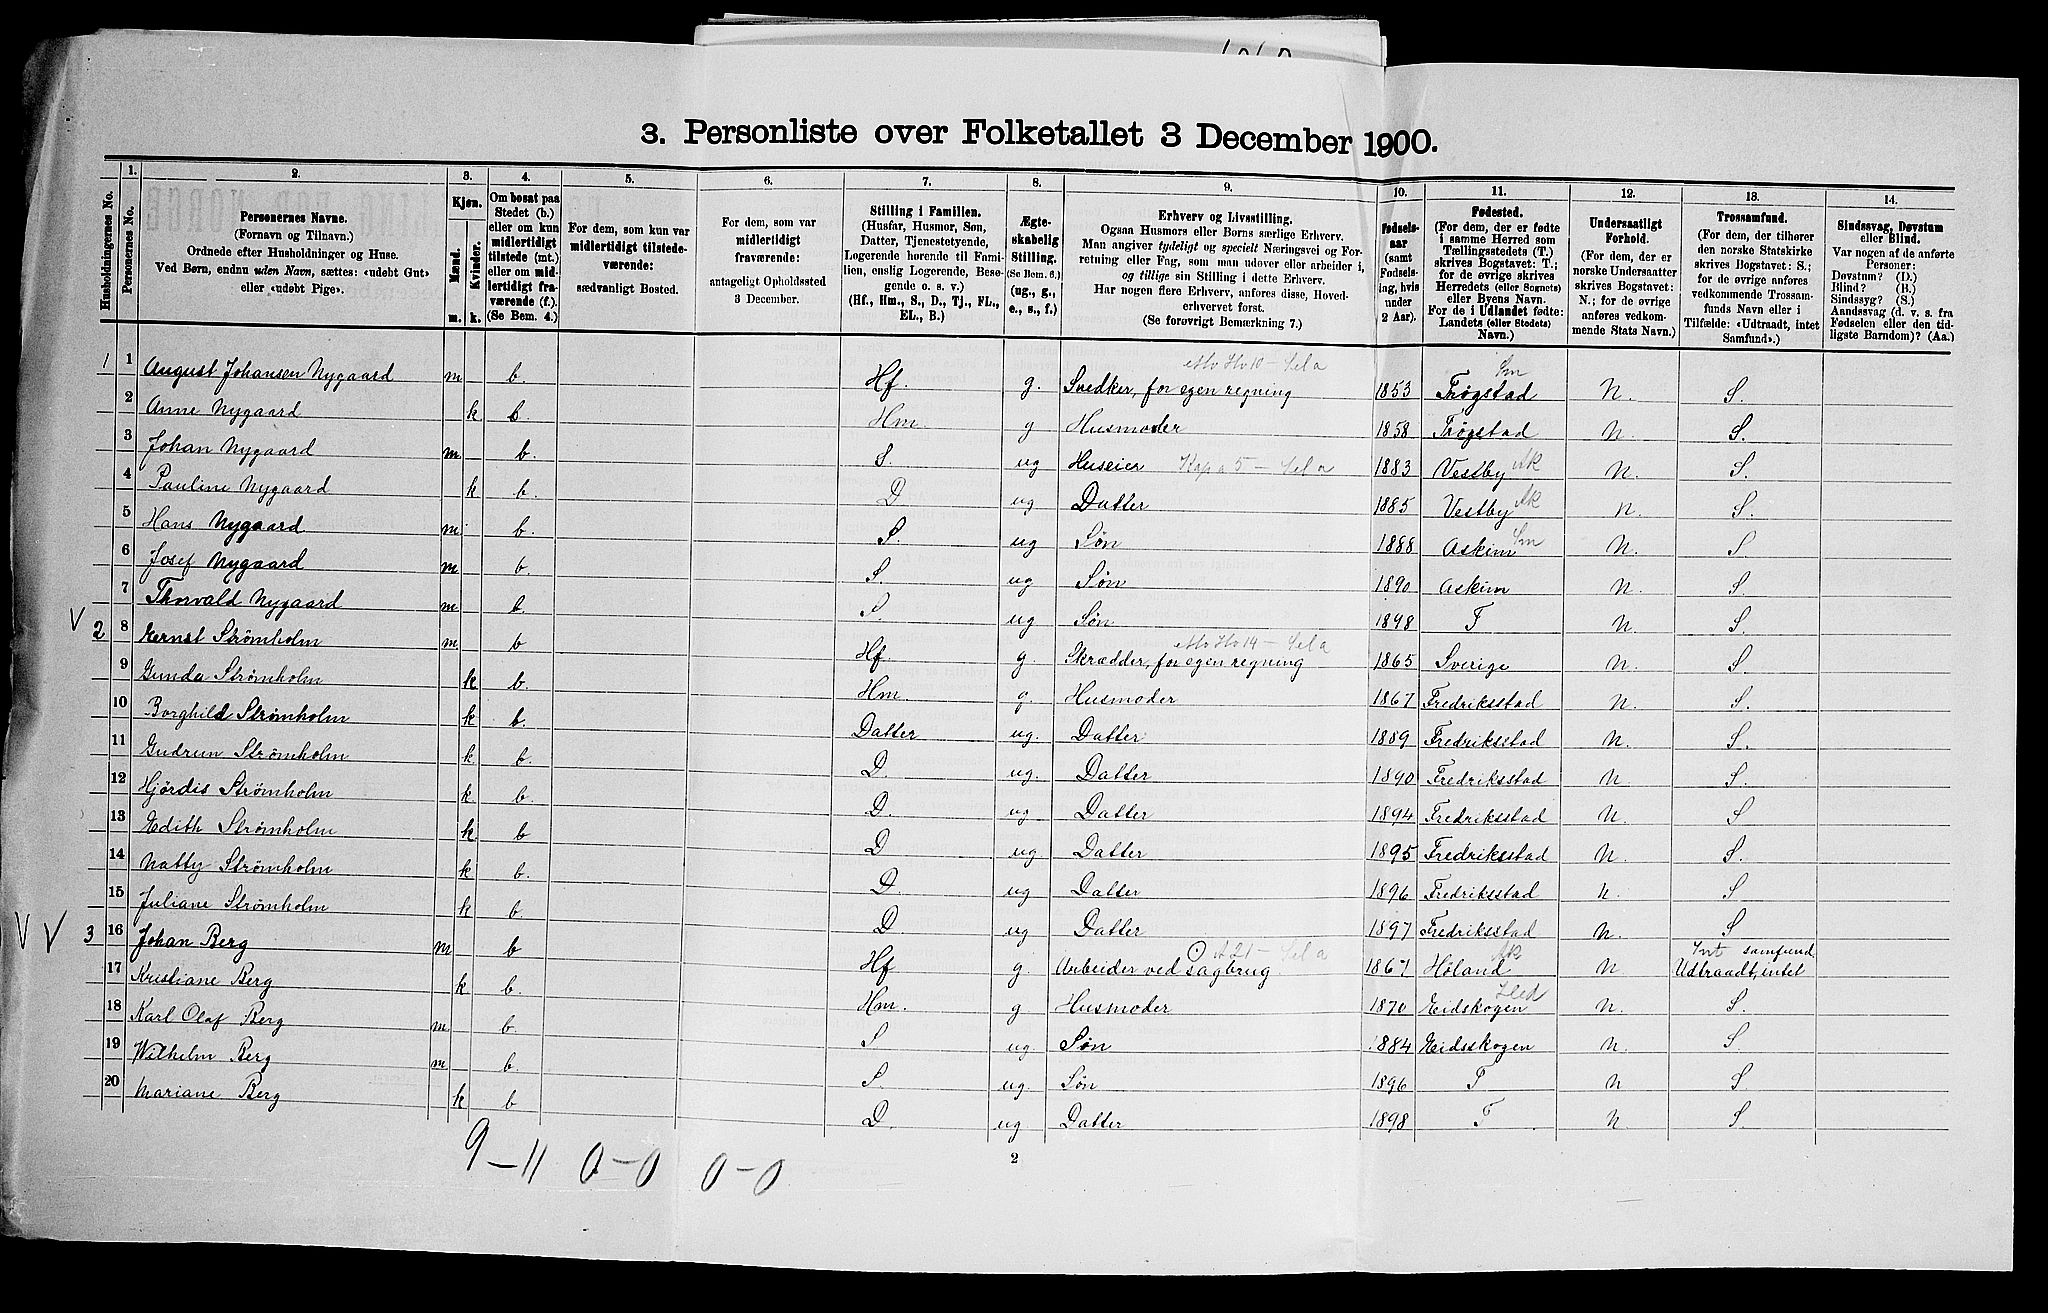 3. Personliste over Folketallet 3 December 1900.
Husholdningernes No.
1. Personernes No.
2. Personernes Navne. (Fornavn og Tilnavn.) Ordnede efter Husholdninger og Huse. Ved Børn, endnu uden Navn, sættes: «udøbt Gut» eller «udøbt Pige».
3. Kjøn. Mænd. m. Kvinder. k.
4. Om bosat paa Stedet (b.) eller om kun midlertidigt tilstede (mt.) eller om midlertidigt fraværende (f.). (Se Bem. 4.)
5. For dem, som kun var midlertidigt tilstedeværende: sædvanligt Bosted.
6. For dem, som var midlertidigt fraværende: antageligt Opholdssted 3 December.
7. Stilling i Familien. (Husfar, Husmor, Søn, Datter, Tjenestetyende, Logerende hørende til Familien, enslig Logerende, Besøgende o. s. v.) (Hf., Hm., S., D., Tj., FL., EL., B.)
8. Ægteskabelig Stilling. (Se Bem. 6.) (ug., g., e., s., f.)
9. Erhverv og Livsstilling. Ogsaa Husmors eller Børns særlige Erhverv. Man angiver tydeligt og specielt Næringsvei og Forretning eller Fag, som man udøver eller arbeider i, og tillige sin Stilling i dette Erhverv. Har nogen flere Erhverv, anføres disse, Hovederhvervet først. (Se forøvrigt Bemærkning 7.)
10. Fødselsaar (samt Fødselsdag, hvis under 2 Aar).
11. Fødested. (For dem, der er fødte i samme Herred som Tællingsstedets (T.) skrives Bogstavet: T.; for de øvrige skrives Herredets (eller Sognets) eller Byens Navn. For de i Udlandet fødte: Landets (eller Stedets) Navn.)
12. Undersaatligt Forhold. (For dem, der er norske Undersaatter skrives Bogstavet: N.; for de øvrige anføres vedkommende Stats Navn.)
13. Trossamfund. (For dem, der tilhører den norske Statskirke skrives Bogstavet: S.; for de øvrige anføres vedkommende Trossamfunds Navn eller i Tilfælde: «Udtraadt, intet Samfund».)
14. Sindssvag, Døvstum eller Blind. Var nogen af de anførte Personer: Døvstum? (D.) Blind? (B.) Sindssyg? (S.) Aandssvag (d. v. s. fra Fødselen eller den tidligste Barndom)? (Aa.)
1 1 August Johansen Nygaard m b. Hf. g. Svedker, for egen regning Mv Hv 10 - Sela 1853 Trøgstad Sm N. S.
2 Anne Nygaard k b. Hm. g Husmoder 1858 Trøgstad N. S.
3 Johan Nygaard m. b. S. ug Huseier Kap a 5 - Sela 1883 Vestby Ak N. S.
4 Pauline Nygaard k b. D ug Datter 1885 Vestby Ak N. S.
5 Hans Nygaard m b. S. ug Søn 1888 Askim Sm N. S
6 Josef Nygaard m b. S. ug Søn 1890 Askim N. S.
7 Thorvald Nygaard m b. S. ug Søn 1898 T N. S.
V 2 8 Ernst Strømholm m b Hf g. Skrædder, for egen regning Mv Hv 14 - Sela 1865 Sverige N. S
9 Gunda Strømholm k b. Hm g. Husmoder 1867 Fredriksstad N. S.
10 Borghild Strømholm k b. Datter ug. Datter 1889 Fredriksstad N. S.
11 Gudrun Strømholm k b. D. ug. Datter 1890 Fredriksstad N. S.
12 Hjördis Strømholm k b. D. ug. Datter 1894 Fredriksstad N. S
13 Edith Strømholm k b D ug Datter 1895 Fredriksstad N. S.
14 Natty Strømholm k b. D. ug Datter 1896 Fredriksstad N. S
15 Juliane Strømholm k b. D. ug Datter 1897 Fredriksstad N. S
V V 3 16 Johan Berg m b Hf g. Arbeider ved sagbrug A21 - Sela 1867 Høland Ak N Udtraadt, intet samfund Int
17 Kristiane Berg k b. Hm. g Husmoder 1870 Eidskogen Hed N. S.
18 Karl Olaf Berg m b. S ug. Søn 1884 Eidsskogen N. S.
19 Wilhelm Berg m b. S. ug. Søn 1896 T N S
20 Mariane Berg k b D. ug Datter 1898 T N. S
9-11 0-0 0-0
2